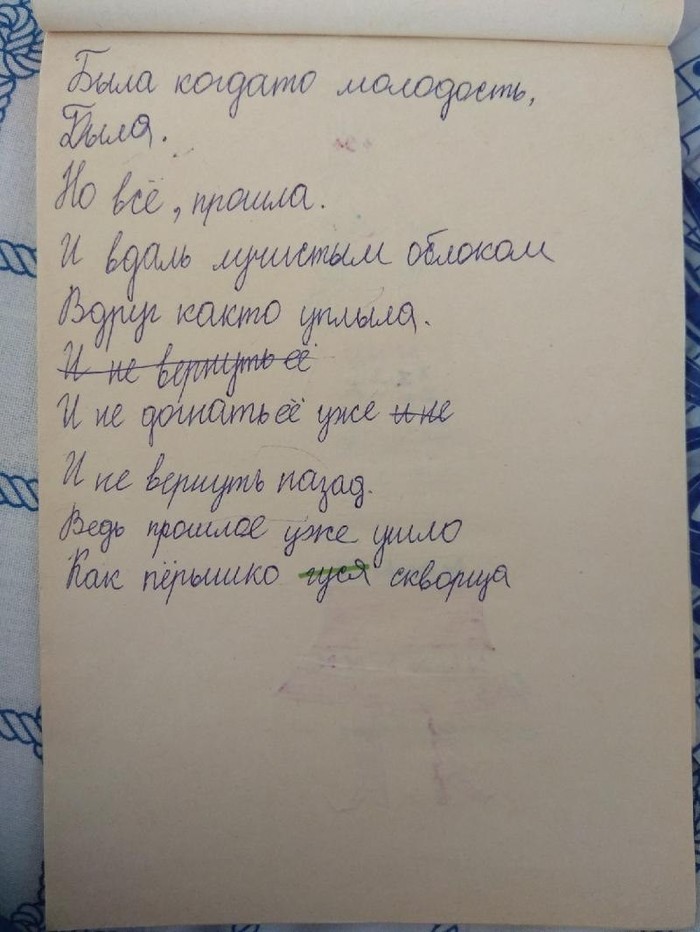 Была когдато молодость,
Была.
Но всё, прошла.
И вдаль лучистым облоком
Вдруг както уплыла.
И не вернуть её
И не догнать её уже и не
И не вернуть назад.
Ведь прошлое уже ушло
Как пёрышко гуся скворца